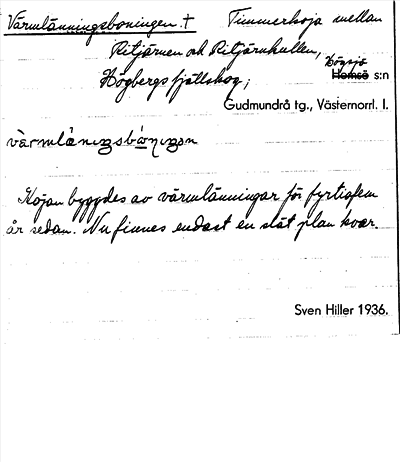 Värmlänningsboningen. † Timmerkoja mellan
Ritjärnen och Ritjärnkullen, Högsjö
Högbergs fjällskog; Hemsö s:n
Gudmundrå tg., Västernorrl. l.
vàrmlàniŋsbóniŋən
Kojan byggdes av värmlänningar för fyrtiofem
år sedan. Nu finnes endast en slät plan kvar.
Sven Hiller 1936.